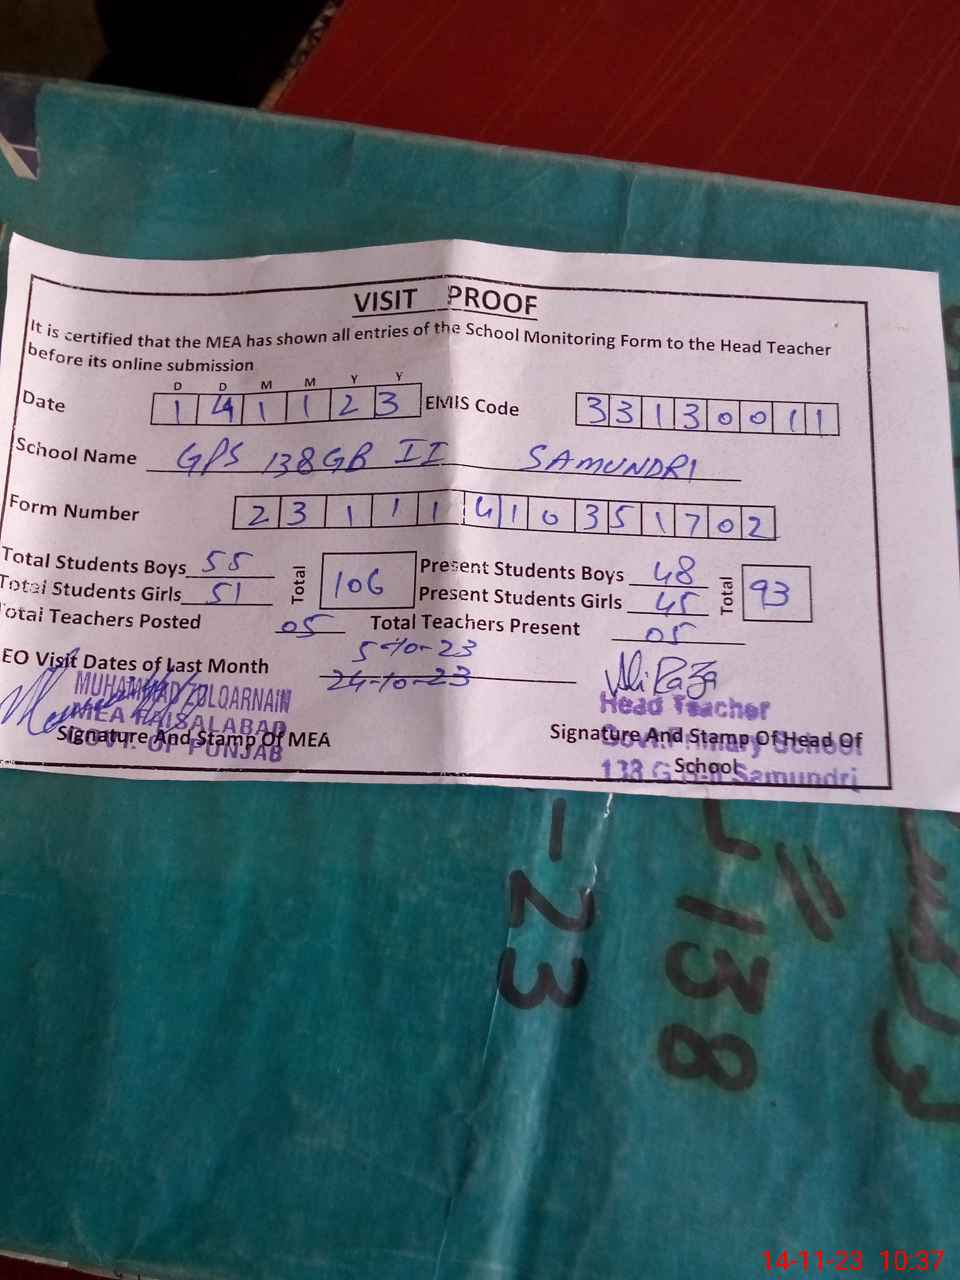 VISIT PROOF
It is certified that the MEA has shown all entries of the School Monitoring Form to the Head Teacher
before its online submission
D D M M Y Y
Date 1 4 1 1 2 3 EMIS Code 3 3 1 3 0 0 1 1
School Name GPS 138GB II SAMUNDRI
Form Number 2 3 1 1 1 4 1 0 3 5 1 7 0 2
Total Students Boys 55 Total 106 Present Students Boys 48 Total 93
Total Students Girls 51 Present Students Girls 45
Total Teachers Posted 05 Total Teachers Present 05
5-10-23
EO Visit Dates of Last Month 24-10-23
Ali Raza
MUHAMMAD ZULQARNAIN
MEA FAISALABAD
GOVT. OF PUNJAB
Signature And Stamp Of MEA
Head Teacher
Govt. Primary School
138 G.B-II Samundri
Signature And Stamp Of Head Of
School
-23
138
14-11-23 10:37